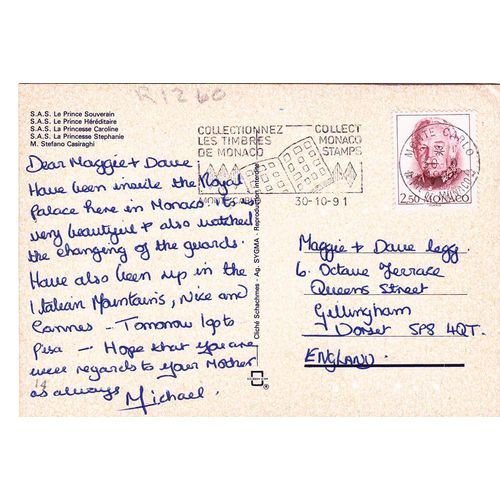 R1260
S.A.S. Le Prince Souverain
S.A.S. Le Prince Héréditaire
S.A.S. La Princesse Caroline
S.A.S. La Princesse Stephanie
M. Stefano Casiraghi
COLLECTIONNEZ
LES TIMBRES
DE MONACO
COLLECT
MONACO
STAMPS
MONTE CARLO
30-10-91
MONTE CARLO
2,50 MONACO
Dear Maggie + Dave
Have been inside the Royal
Palace here in Monaco its
very beautiful + also watched
the changing of the guards.
Have also been up in the
Italian Mountains, Nice and
Cannes - Tomorrow I go to
Pisa - Hope that you are
well regards to your Mother
as always
Michael.
14
Cliché Schachmes - Ag. SYGMA - Reproduction interdite
Maggie + Dave Legg.
6. Octave Terrace
Queens Street
Gillingham
Dorset SP8 4QT.
ENGLAND.